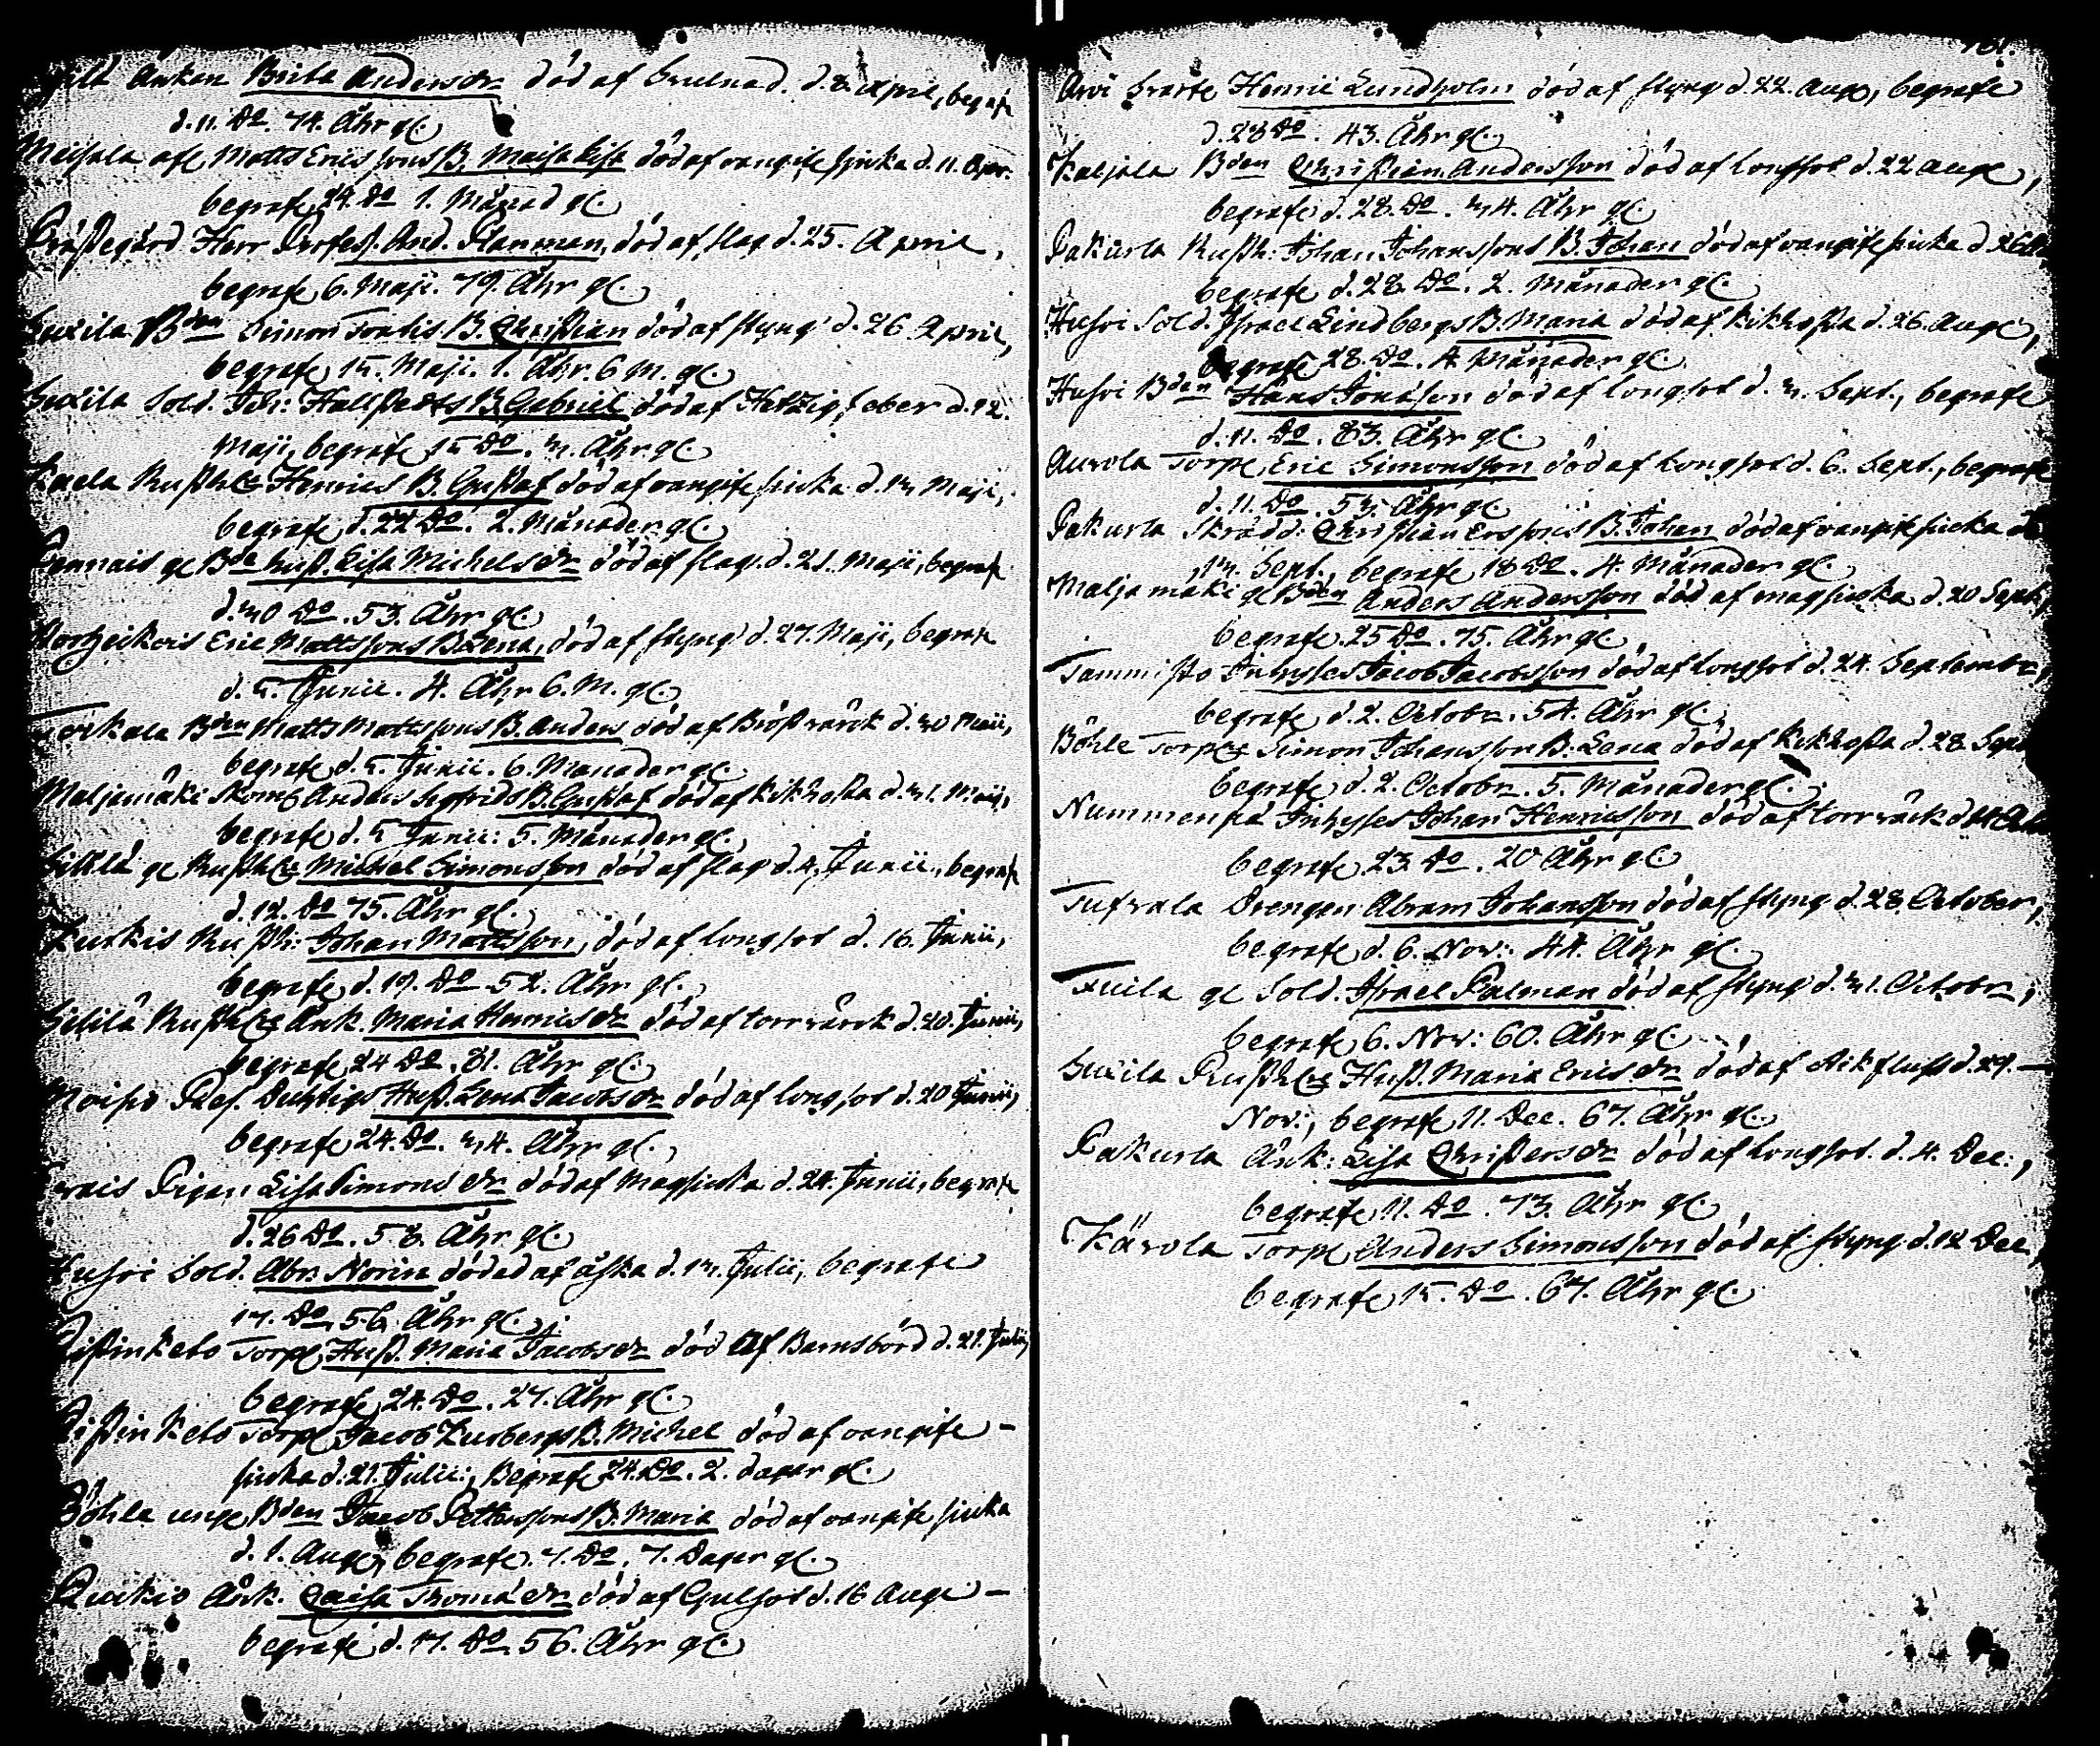 Enkan Brita Andersdr död af Svulnad. d. 8. April, begrafs
d. 11. Do. 74. Åhr gl.
Meisala afl. Matts Ericssons B. Maisa Lisa död af oangifs siuka d. 11. Apr.
begrafs 24. Do 1. Månad gl.
Prästegård Herr Profess. And. Planman, död af slag d. 25. April,
begrafs 6. Maji. 79. Åhr gl.
Bden Simon Tomtis B. Christian död af styng d. 26 April,
begrafs 15. Maji. 1. Åhr. 6 M. gl.
Sold. Joh: B. Gabriel död af Hetzig feber d. 12.
Maji, begrafs 15 Do. 3. Åhr gl.
Rusth. Henrics B. Gustaf död af oangifs siuka d. 13 Maji,
begrafs d. 22 Do. 2. Månader gl.
gl Bde hust. Lisa Michelsdr död af slag. d. 21. Maji, begrafs
d. 30 Do. 53. Åhr gl.
Eric Mattssons B. Lena, död af styng d. 27. Maji, begrafs
d. 5. Junii. 4. Åhr 6. M. gl.
Torkala Bden Matts Mattssons B. Anders död af Bröstvärck d. 30 Maii,
begrafs d. 5. Junii. 6. Månader gl.
Maljamäki Anders Sigfrids B. Gustaf död af kikhosta d. 31. Maji,
begrafs d. 5 Junii: 5. Månader gl.
gl Rusth. Michel Simonsson död af slag d. 4. Junii, begrafs
d. 12. Do 75. Åhr gl.
Kurkis Rusth: Johan Mattsson, död af longsot d. 16. Junii,
begrafs d. 19. Do 52. Åhr gl.
Rusth. Änk. Maria Henricsdr död af torrvärck d. 20. Junii,
begrafs 24 Do. 81. Åhr gl.
Moisio Hust. Lena Jacobsdr död af longsot d. 20 Junii,
begrafs 24. Do. 34. Åhr gl.
Pigan Lisa Simonsdr död af Magsiuka d. 24. Junii, begrafs
d. 26 Do. 58. Åhr gl.
Huhvi Sold. Abr. Norin dödad af åska d. 13. Julii, begrafs
17. Do. 56. Åhr gl.
Torp. Hust. Maria Jacobsdr död af Barnsbörd d. 21. Julii,
begrafs 24. Do. 27. Åhr gl.
Torp. Jacob B. Michel död af oangifs –
siuka d. 21. Julii: Begrafs 24. Do. 2. dagar gl.
Böhle unge Bden Jacob Pettersons B. Maria död af oangifs siuka
d. 1. Aug., begrafs. 7. Do. 7. Dagar gl.
Kurkio Änk. Caisa Thomædr död af Gulsot d. 16 Aug –
begrafs d. 17. Do. 56. Åhr gl.
Arvi Henric Lundholm död af styng d. 22. Aug, begrafs
d. 28 Do. 43. Åhr gl.
Kaljala Bden Christian Andersson död af longsot d. 22 Aug,
begrafs d. 28. Do. 34. Åhr gl.
Pakurla Rusth: Johan Johanssons B. Johan död af oangifs siuka d. 26
begrafs d. 28. Do. 2. Månader gl.
Huhvi Sold. Israel Lindbergs B. Maria död af kikhosta d. 26. Aug.,
begrafs 28. Do. 4 Månader gl.
Huhvi Bden Hans Jonasson död af longsot d. 3. Sept., begrafs
d. 11. Do. 83. Åhr gl.
Aurola Torp. Eric Simonsson död af longsot d. 6. Sept., begrafs
d. 11. Do. 53. Åhr gl.
Pakurla Skrädd: Christian Erssons B. Johan död af oangifs siuka
13. Sept., begrafs 18 Do. 4. Månader gl.
Maljamäki gl Bden Anders Andersson död af magsiuka d. 20 Sept,
begrafs. 25 Do. 75. Åhr gl.
Tammisto Inhyses Jacob Jacobsson död af longsot d. 24. September,
begrafs d. 2. Octobr. 54. Åhr gl.
Böhle Torp. Simon Johansson B. Lena död af kikhosta d. 28. Sept
begrafs d. 2. Octobr. 5. Månader gl.
Nummenpä Inhyses Johan Henricsson död af torrvärck d. 14
begrafs 23 Do. 20 Åhr gl.
Drengen Abram Johansson död af styng d. 28. October,
begrafs d. 6. Nov: 44. Åhr gl.
gl Sold. Israel Palman död af styng d. 31. Octobr,
begrafs 6. Nov: 60. Åhr gl.
Rusth. Hust. Maria Ericsdr död af d. 29. –
Nov:, begrafs 11. Dec. 67. Åhr gl.
Pakurla Änk: Lisa Christersdr död af longsot. d. 4. Dec:,
begrafs 11. Do. 73. Åhr gl.
Kärola Torp. Anders Simonsson död af styng d. 12 Dec,
begrafs 15. Do. 67. Åhr gl.